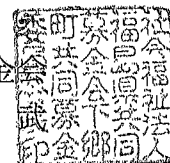 社会福祉法人
福島県共同
募金会下郷
町共同募金
会 印